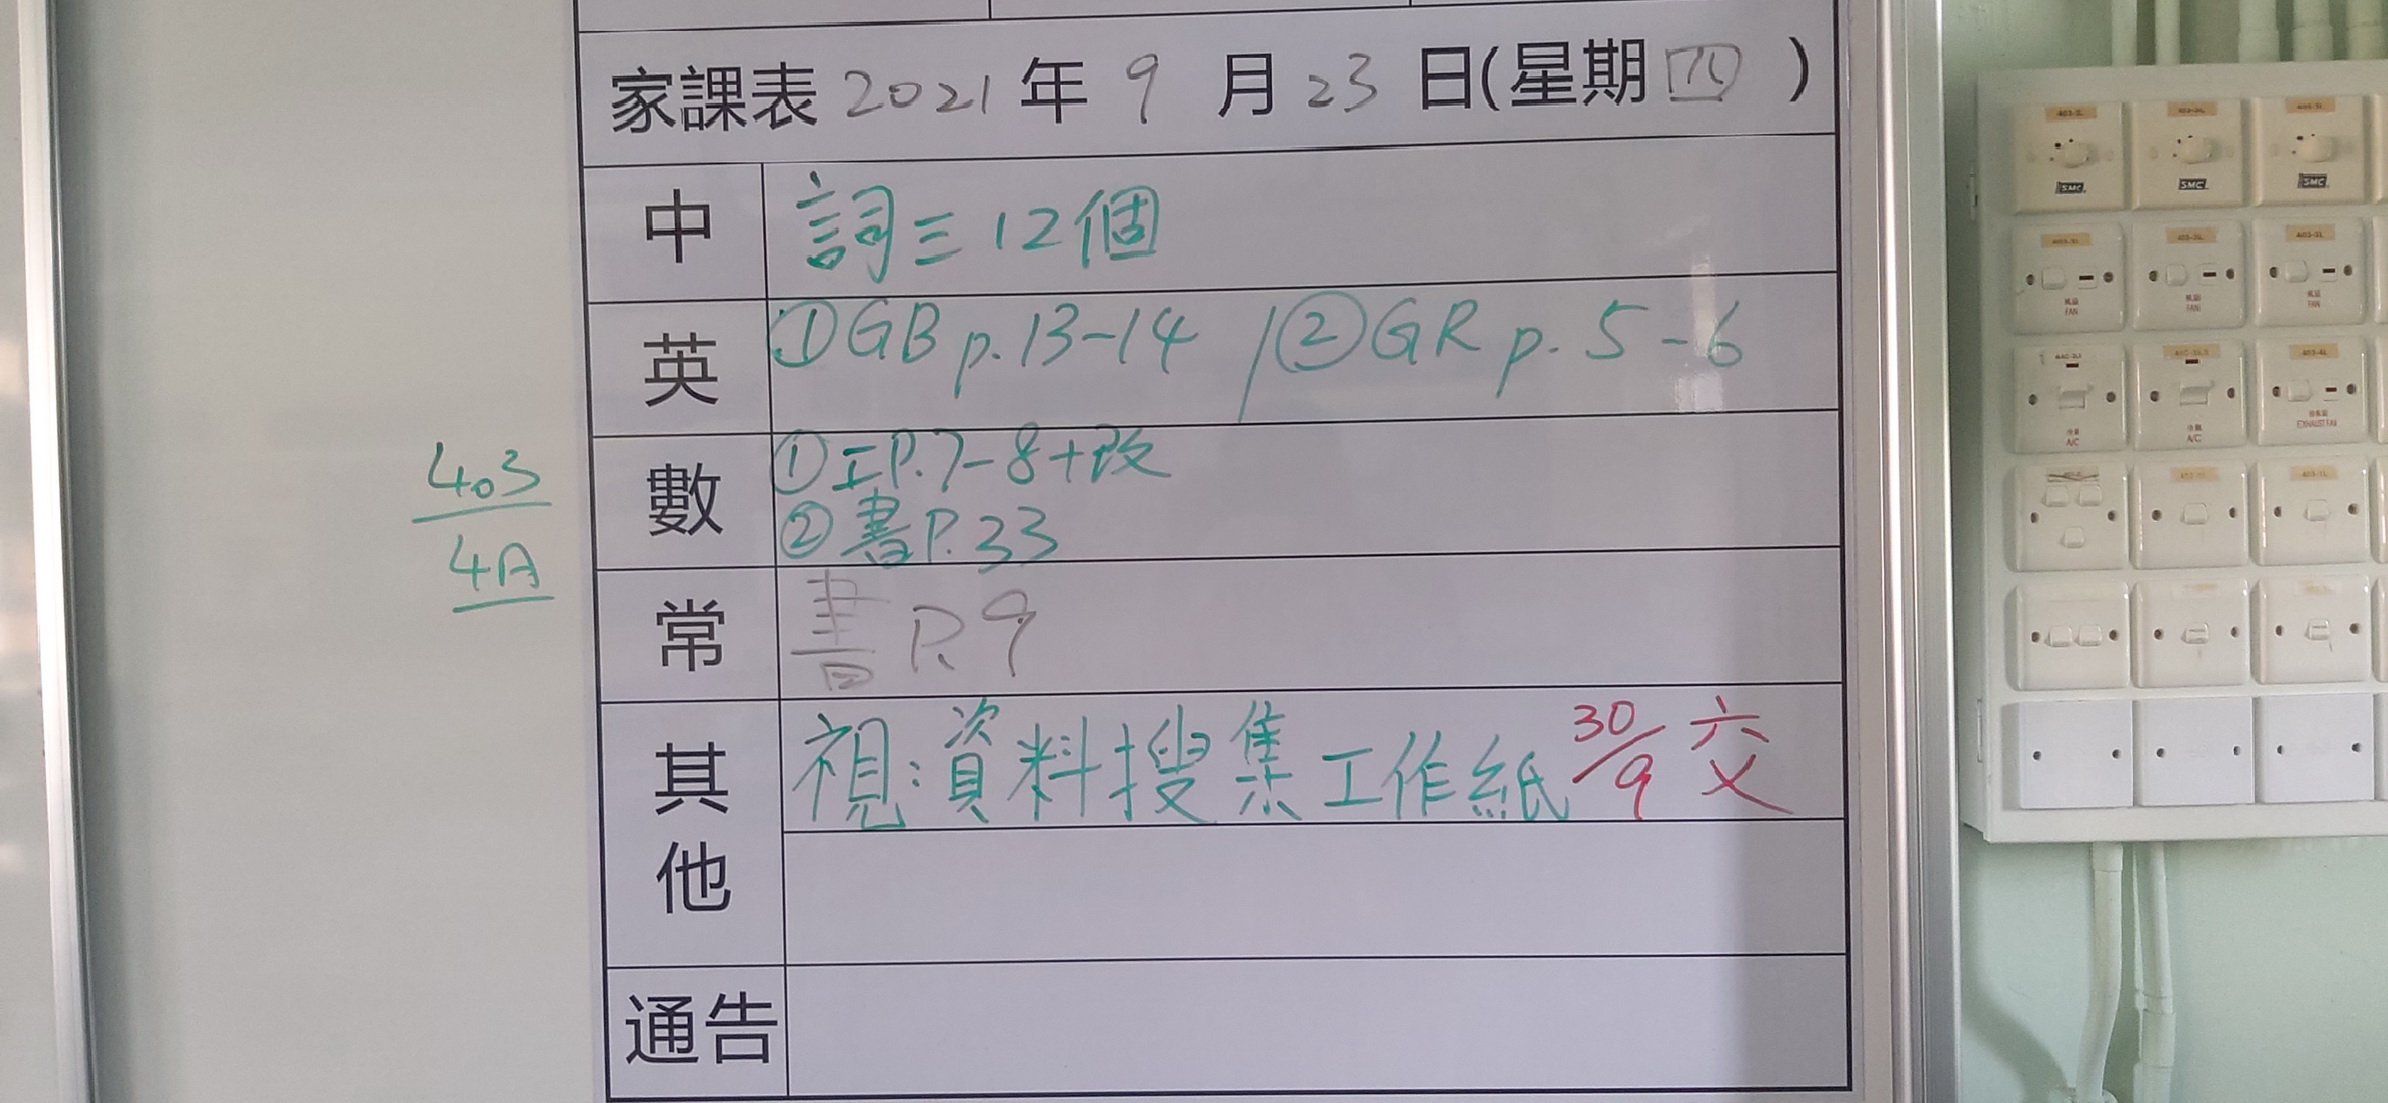 家課表 2021 年 9 月 23 日(星期 四 )
中 詞三12個
英 ①GB p.13-14 / ②GR p. 5-6
數 ①工P.7-8+改
②書P.33
常 書P.9
其他 視:資料搜集工作紙 30/9 交
通告
403
4A
SMC SMC SMC
風扇 FAN 風扇 FAN 風扇 FAN
冷氣 A/C 冷氣 A/C 抽氣扇 EXHAUST FAN